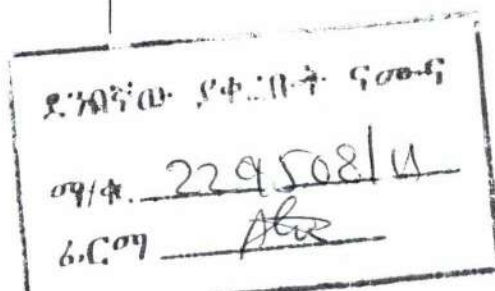 ደንበኛው ያቀረቡት ናሙና
ማ/ቁ. 229508/ህ
ፊርማ